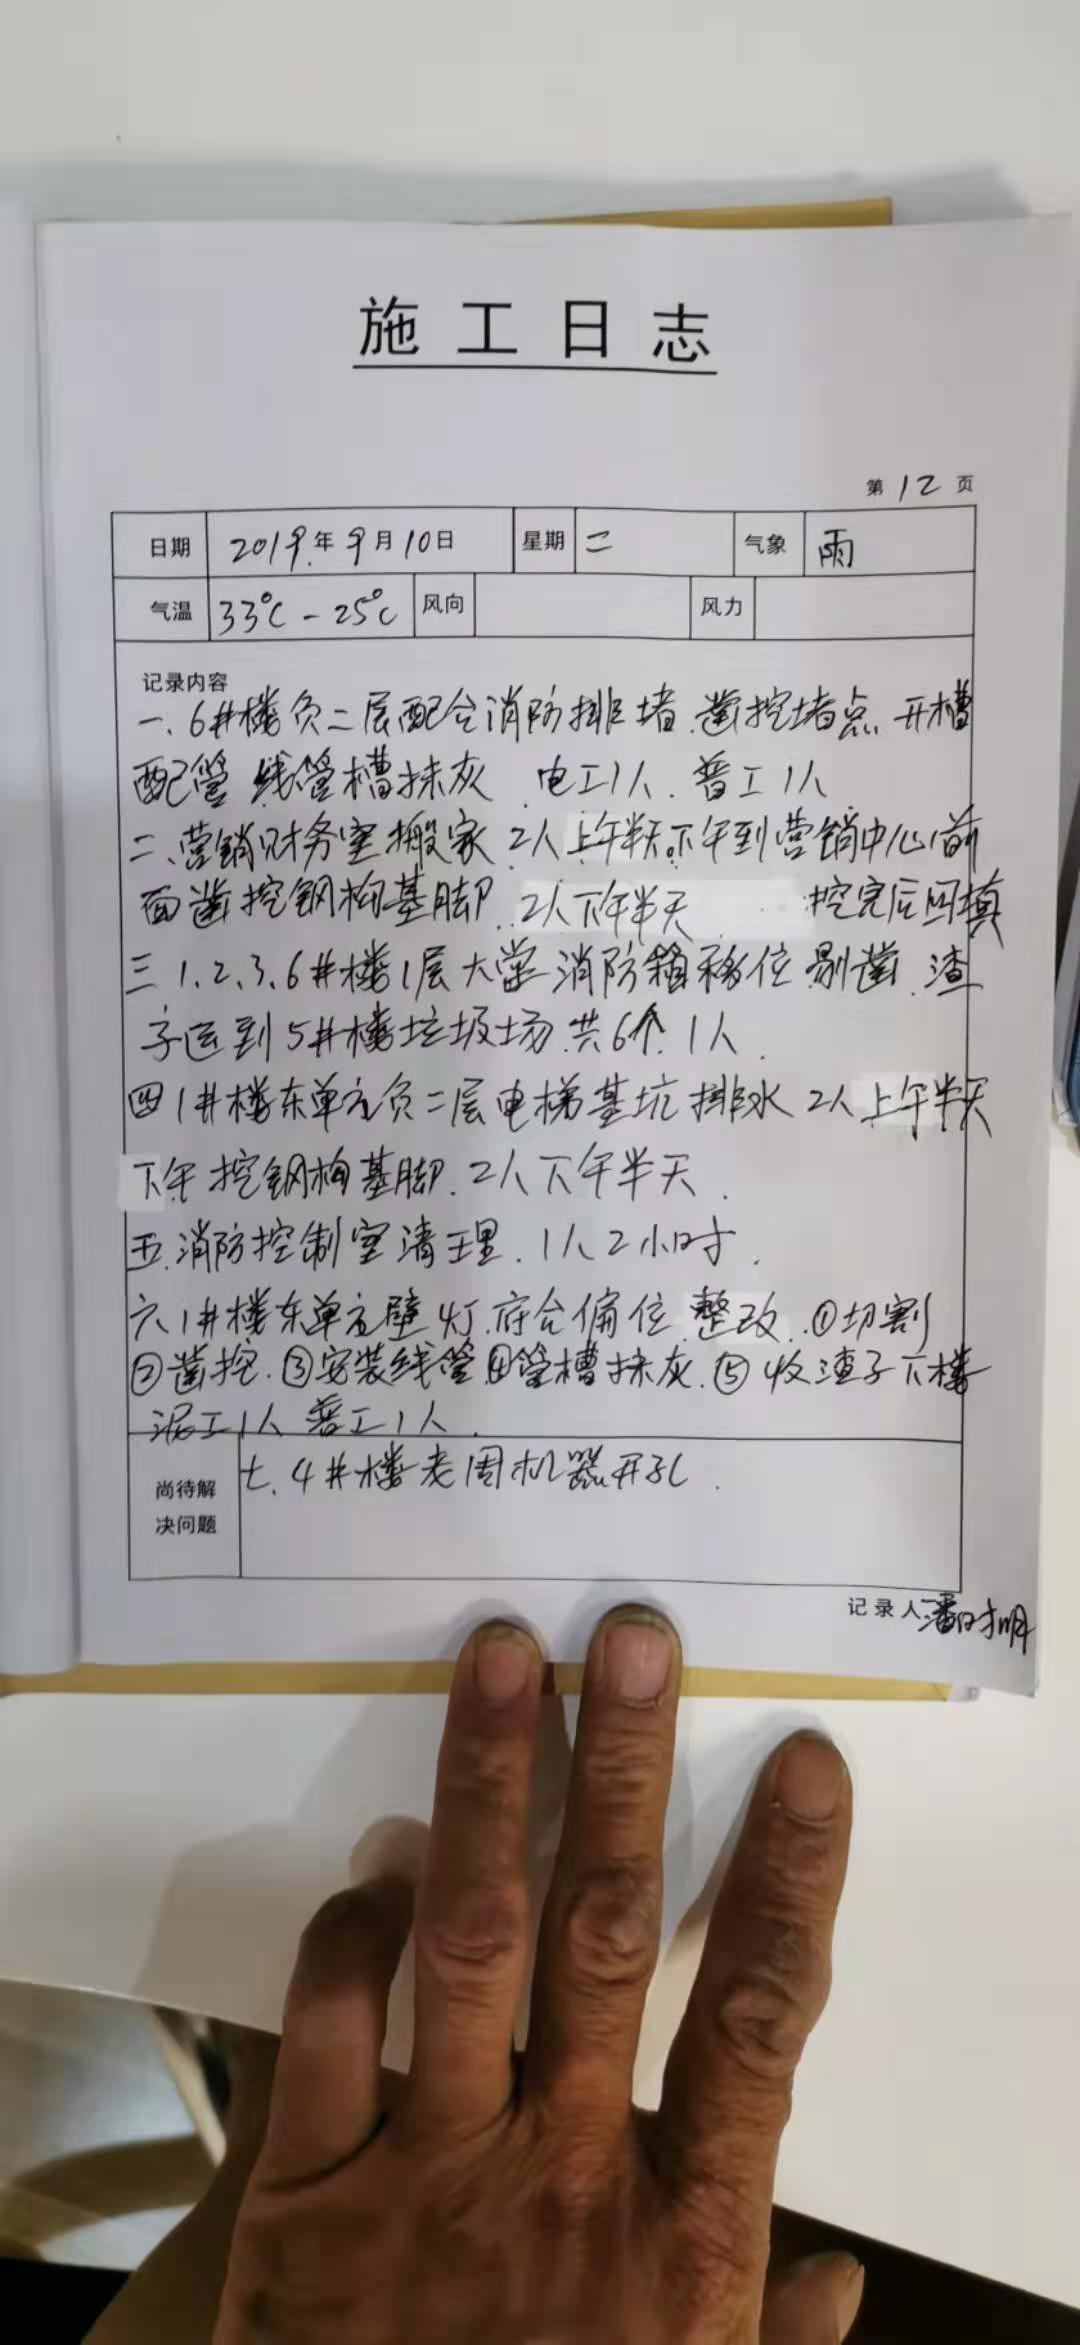 施工日志
第 12 页
日期 2019年9月10日 星期 二 气象 雨
气温 33℃-25℃ 风向 风力
记录内容
一.6#楼负二层配合消防排堵.凿挖堵点 开槽
配管 线管槽抹灰.电工1人.普工1人
二、营销财务室搬家 2人上午半天.下午到营销中心前
面凿挖钢构基脚.2人下午半天 挖完后回填
三 1.2.3.6#楼1层大堂消防箱移位剔凿.渣
子运到5#楼垃圾场.共6个.1人.
四 1#楼东单元负二层电梯基坑排水 2人上午半天
下午挖钢构基脚.2人下午半天.
五.消防控制室清理.1人2小时.
六 1#楼东单元壁灯.底合偏位 整改.①切割
②凿挖.③安装线管④管槽抹灰.⑤收渣子下楼
泥工1人 普工1人.
尚待解 七.4#楼老周机器开孔.
决问题
记录人